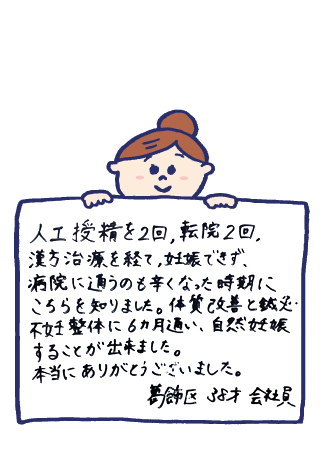 人工授精を2回,転院2回,
漢方治療を経て,妊娠できず、
病院に通うのも辛くなった時期に
こちらを知りました。体質改善と鍼灸・
不妊整体に6カ月通い、自然妊娠
することが出来ました。
本当にありがとうございました。
葛飾区 38才 会社員